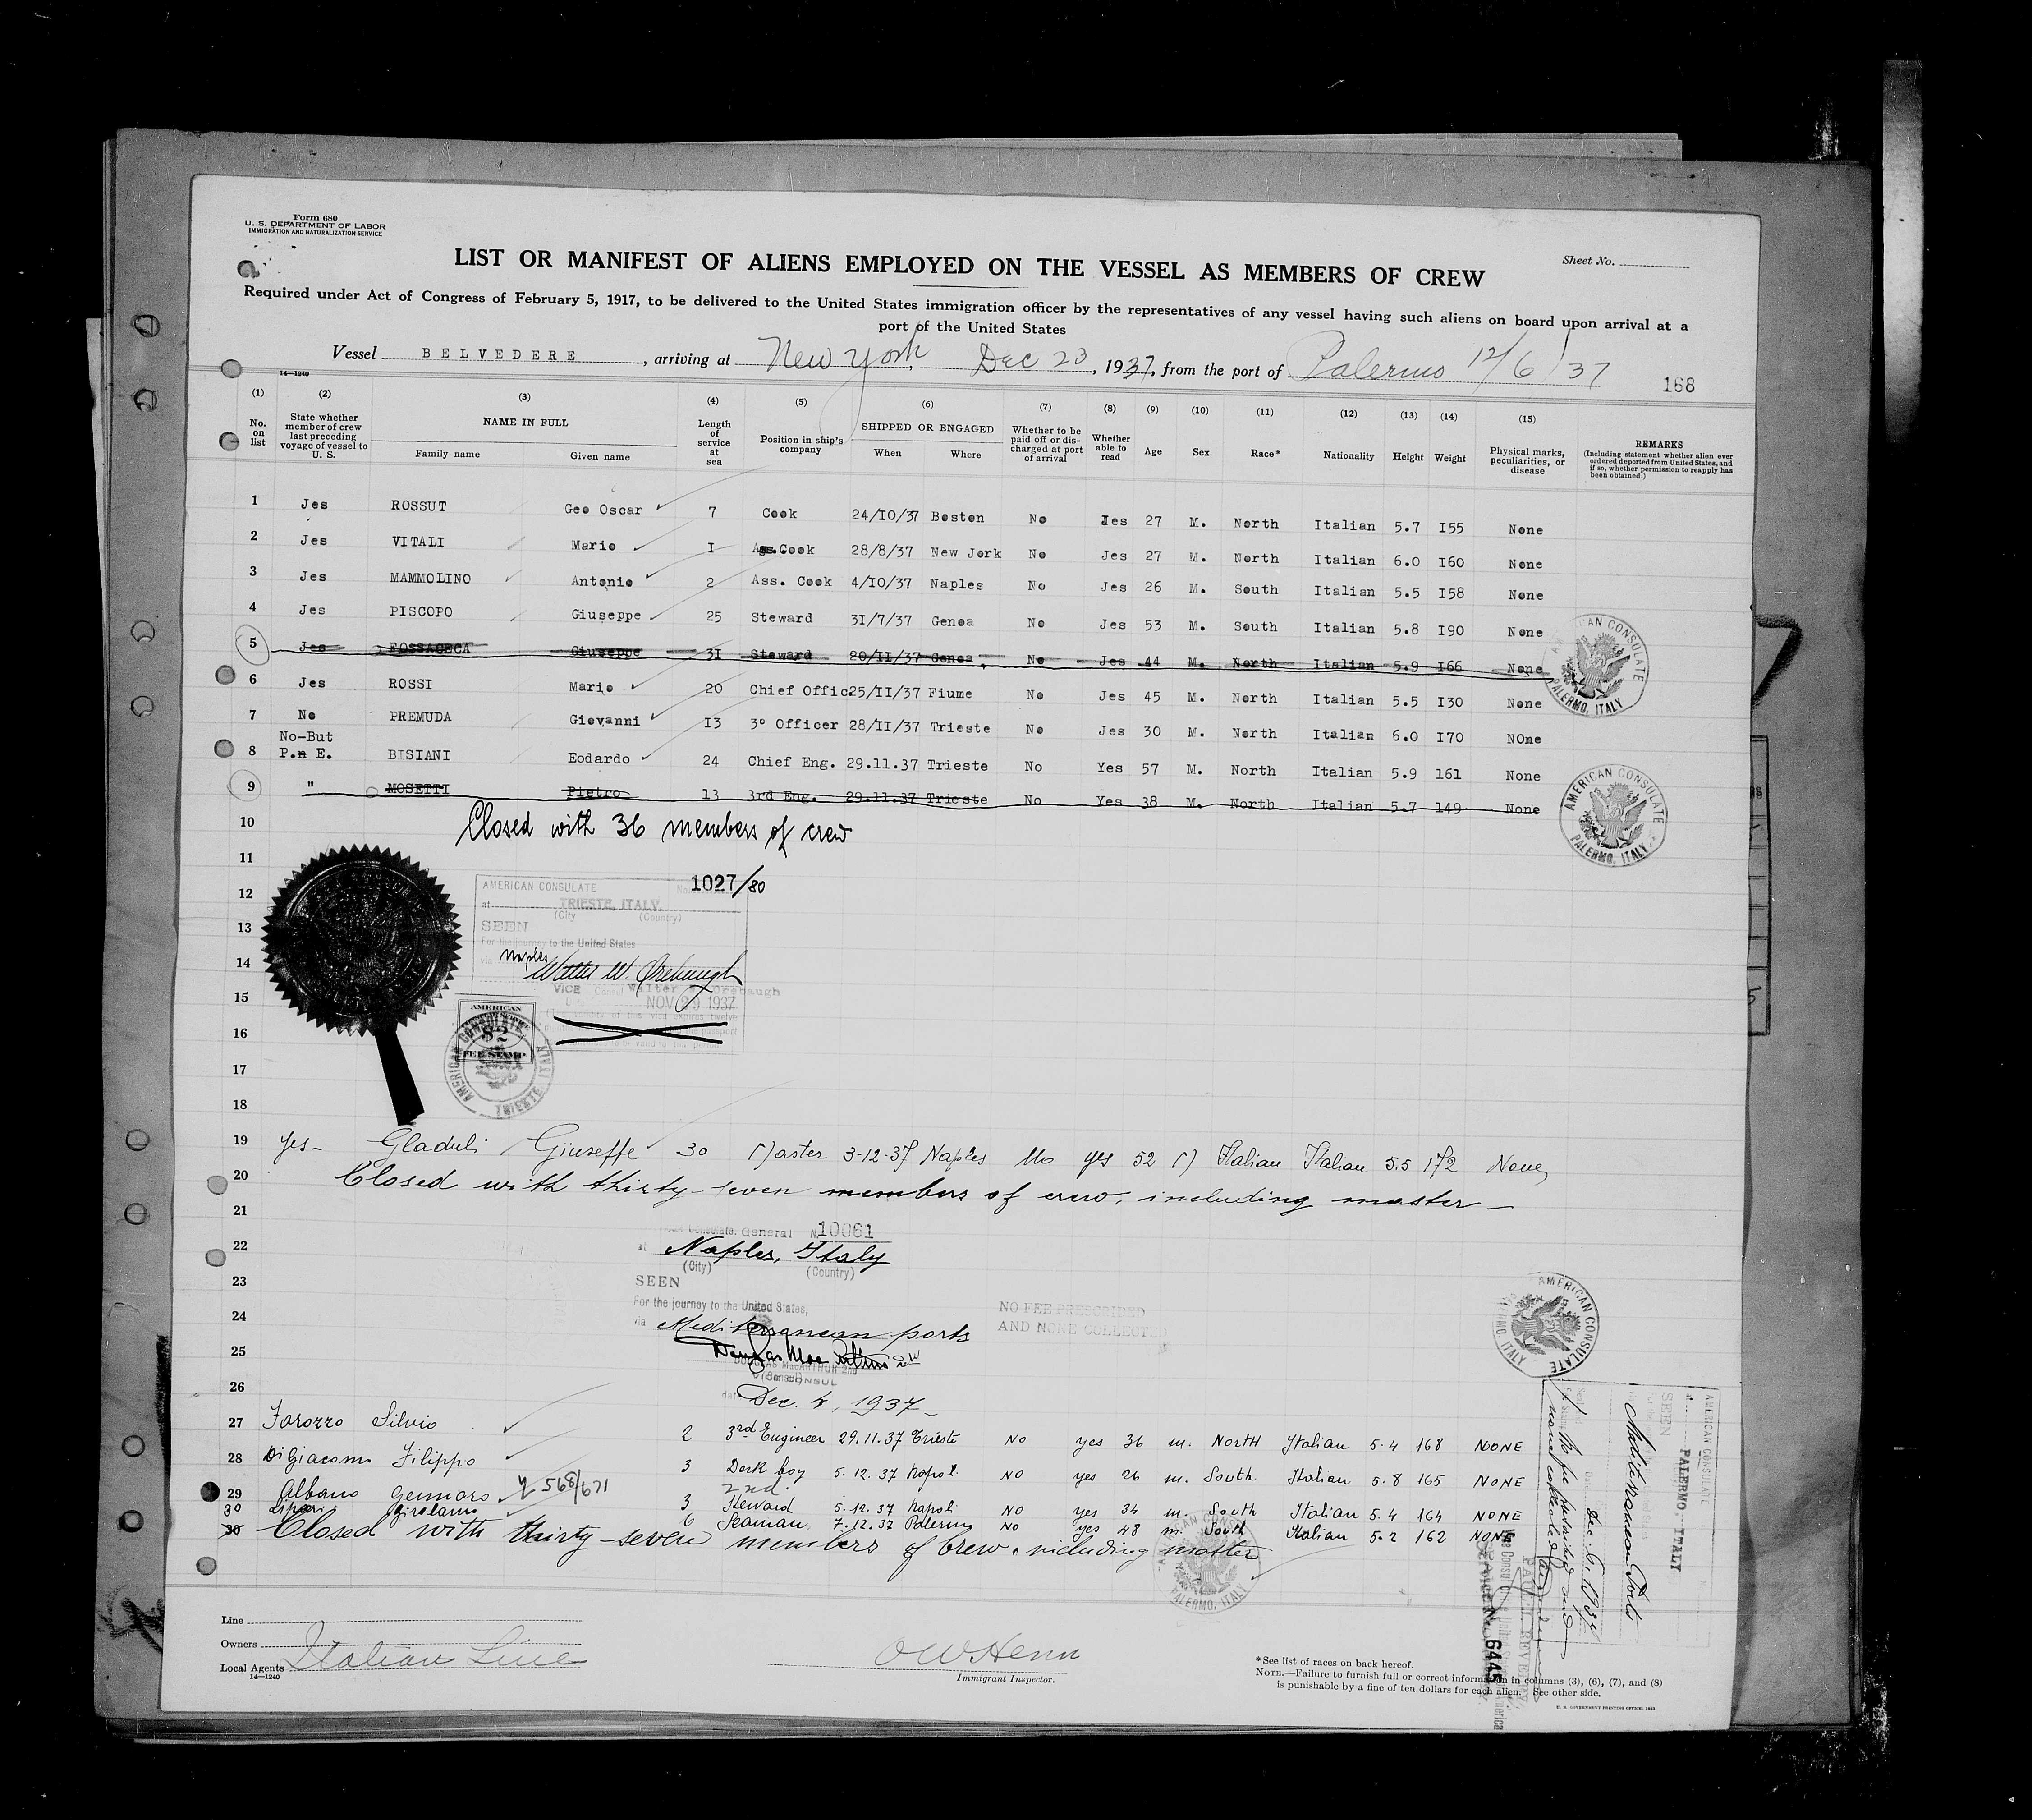 Form 680
U. S. DEPARTMENT OF LABOR
IMMIGRATION AND NATURALIZATION SERVICE
Sheet No.
LIST OR MANIFEST OF ALIENS EMPLOYED ON THE VESSEL AS MEMBERS OF CREW
Required under Act of Congress of February 5, 1917, to be delivered to the United States immigration officer by the representatives of any vessel having such aliens on board upon arrival at a
port of the United States
Vessel BELVEDERE, arriving at New York, Dec 23, 1937, from the port of Palermo 12/6/37
14—1240
168
(1) (2) (3) (4) (5) (6) (7) (8) (9) (10) (11) (12) (13) (14) (15)
No. on list
State whether member of crew last preceding voyage of vessel to U. S.
NAME IN FULL
Family name Given name
Length of service at sea
Position in ship's company
SHIPPED OR ENGAGED
When Where
Whether to be paid off or discharged at port of arrival
Whether able to read
Age Sex Race* Nationality Height Weight
Physical marks, peculiarities, or disease
REMARKS
(Including statement whether alien ever ordered deported from United States, and if so, whether permission to reapply has been obtained.)
1 Jes ROSSUT Geo Oscar 7 Cook 24/I0/37 Boston No Ies 27 M. North Italian 5.7 I55 None
2 Jes VITALI Mario I Ass.Cook 28/8/37 New Jork No Jes 27 M. North Italian 6.0 I60 None
3 Jes MAMMOLINO Antonio 2 Ass. Cook 4/I0/37 Naples No Jes 26 M. South Italian 5.5 I58 None
4 Jes PISCOPO Giuseppe 25 Steward 3I/7/37 Genoa No Jes 53 M. South Italian 5.8 I90 None
5 Jes FOSSACECA Giuseppe 3I Steward 20/II/37 Genoa No Jes 44 M. North Italian 5.9 I66 None
6 Jes ROSSI Mario 20 Chief Offic 25/II/37 Fiume No Jes 45 M. North Italian 5.5 I30 None
7 No PREMUDA Giovanni I3 3° Officer 28/II/37 Trieste No Jes 30 M. North Italian 6.0 I70 NOne
No-But
8 P.n E. BISIANI Eodardo 24 Chief Eng. 29.11.37 Trieste No Yes 57 M. North Italian 5.9 161 None
9 " MOSETTI Pietro 13 3rd Eng. 29.11.37 Trieste No Yes 38 M. North Italian 5.7 149 None
AMERICAN CONSULATE PALERMO, ITALY
AMERICAN CONSULATE PALERMO, ITALY
10 Closed with 36 members of crew
11
12 AMERICAN CONSULATE 1027/80
at TRIESTE, ITALY.
(City (Country)
13 SEEN
For the journey to the United States
14 via Naples
Walter W. Orebaugh
VICE Consul Walter W. Orebaugh
15 NOV 29 1937
AMERICAN
$2
FEE STAMP
16
AMERICAN CONSULATE TRIESTE ITALY
17
18
19 yes- Gladuli Giuseppe 30 Master 3-12-37 Naples No yes 52 M Italian Italian 5.5 172 None
20 Closed with thirty-seven members of crew, including master
21
Consulate General 10061
22 Naples, Italy
(City) (Country)
23 SEEN
For the journey to the United States,
24 via Mediterranean ports
NO FEE PRESCRIBED
AND NONE COLLECTED
25 Douglas MacArthur 2nd
DOUGLAS MacARTHUR 2nd
VICE CONSUL
26 date Dec. 4, 1937
AMERICAN CONSULATE ITALY
27 Farozzo Silvio 2 3rd Engineer 29.11.37 Trieste NO yes 36 m. NORTH Italian 5.4 168 NONE
28 DiGiacomo Filippo 3 Deck boy 5.12.37 Napoli NO yes 26 m. South Italian 5.8 165 NONE
29 Albano Gennaro 568/671 3 2nd Steward 5.12.37 Napoli NO yes 34 m. South Italian 5.4 164 NONE
30 Lipari Girolamo 6 Seaman 7.12.37 Palermo NO yes 48 m. South Italian 5.2 162 NONE
30 Closed with thirty-seven members of crew, including master
PALERMO, ITALY
AMERICAN CONSULATE
at PALERMO, ITALY
SEEN
Mediterranean Ports
Dec. 6, 1937
No fee prescribed and
none collected
6445
Line
Owners
Local Agents Italian Line
14—1240
O W Henn
Immigrant Inspector.
*See list of races on back hereof.
NOTE.—Failure to furnish full or correct information in columns (3), (6), (7), and (8)
is punishable by a fine of ten dollars for each alien. See other side.
U. S. GOVERNMENT PRINTING OFFICE